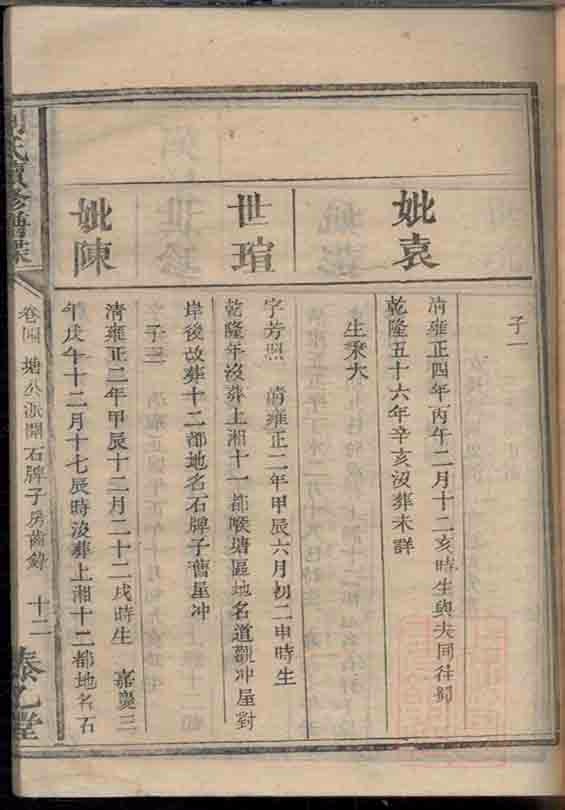 子一
妣袁
清雍正四年丙午二月十二亥時生與夫同往蜀
乾隆五十六年辛亥沒葬未詳
生秉大
世瑄
字芳照 清雍正二年甲辰六月初二申時生
乾隆年沒葬上湘十一都喉塘區地名道觀冲屋對
岸後改葬十二都地名石牌子舊屋冲
子三
妣陳
清雍正二年甲辰十二月二十二戌時生 嘉慶三
年戊午十二月十七辰時沒葬上湘十二都地名石
氏續修譜牒
卷四 塘公派開石牌子房齒錄 十二
堂